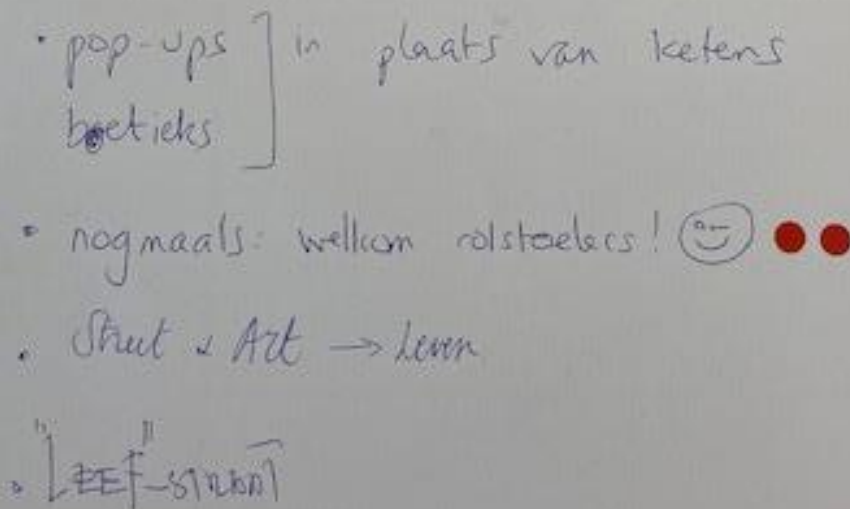 • pop-ups ] in plaats van ketens
boetieks
• nogmaals: welkom rolstoelers!
• Street & Art → Leven
• "LEEF"-straat